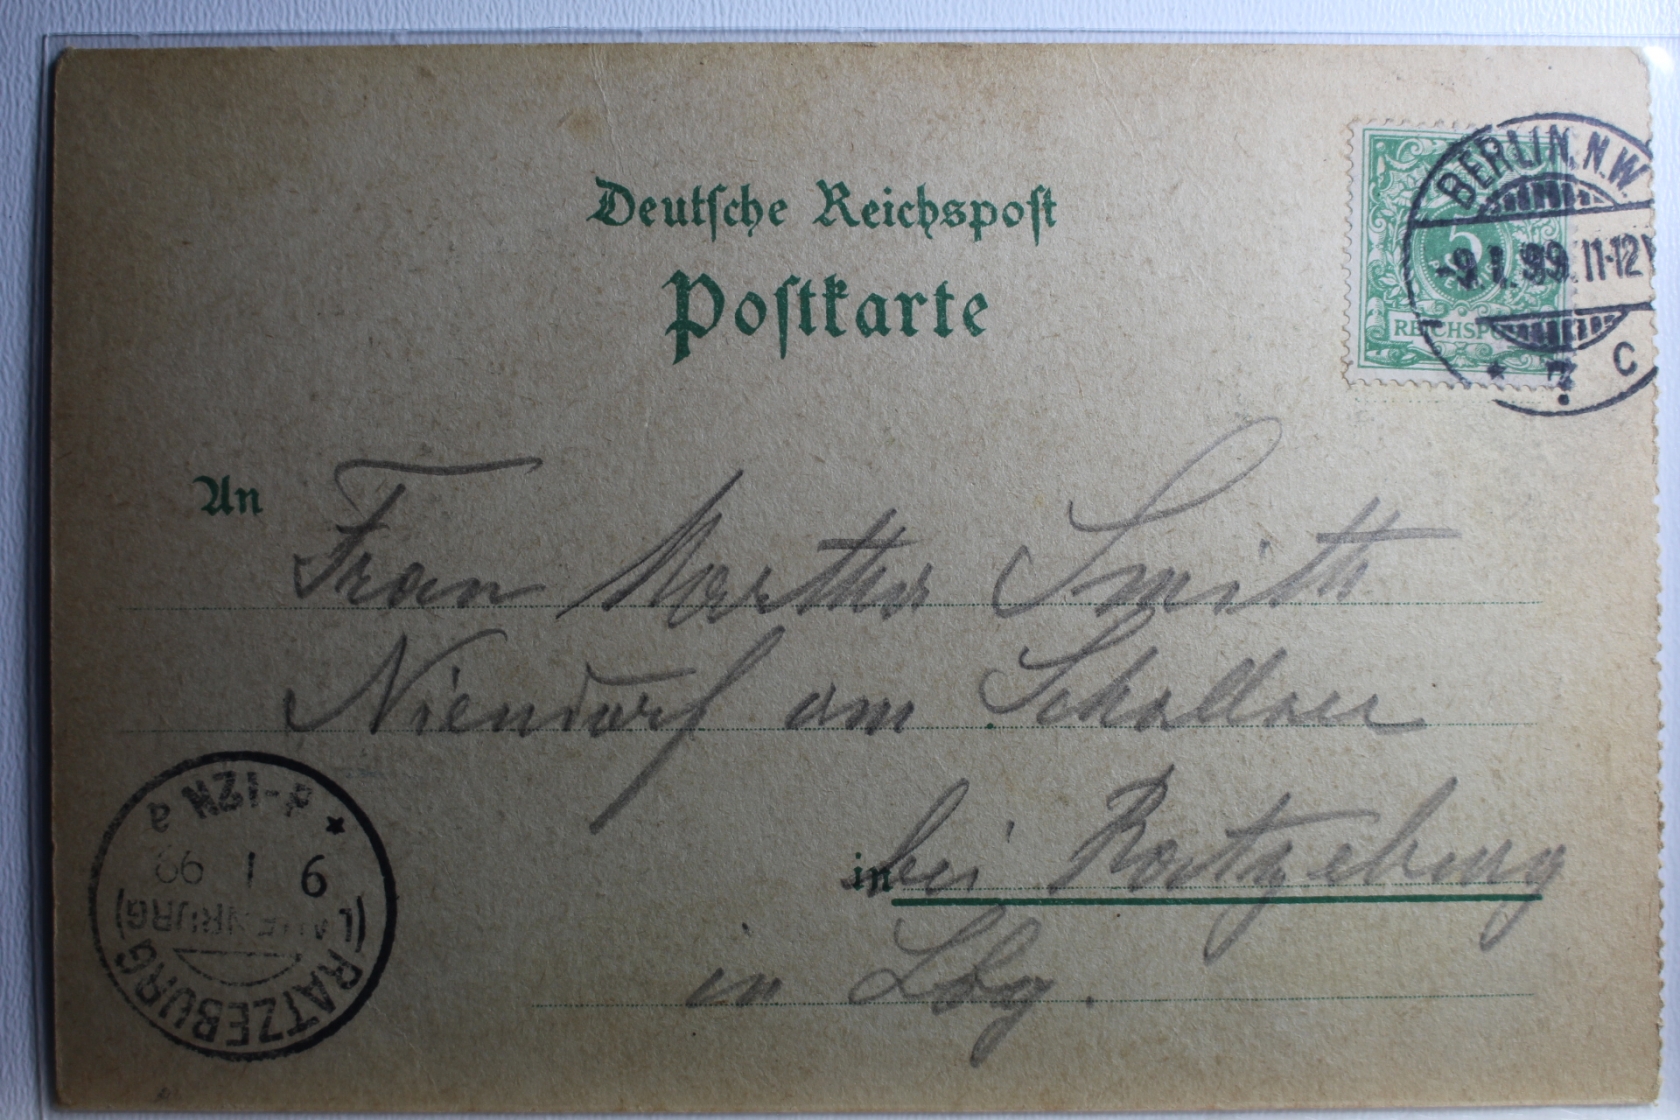 Deutsche Reichspost
Postkarte
BERLIN. N.W.
5
-9.1.99. 11-12V
REICHSPOST
* 7. C
An
Frau Martha Smith
Niendorf am Schallsee
in bei Ratzeburg
in Lbg.
RATZEBURG
(LAUENBURG)
9 1 99
* 4-12N a